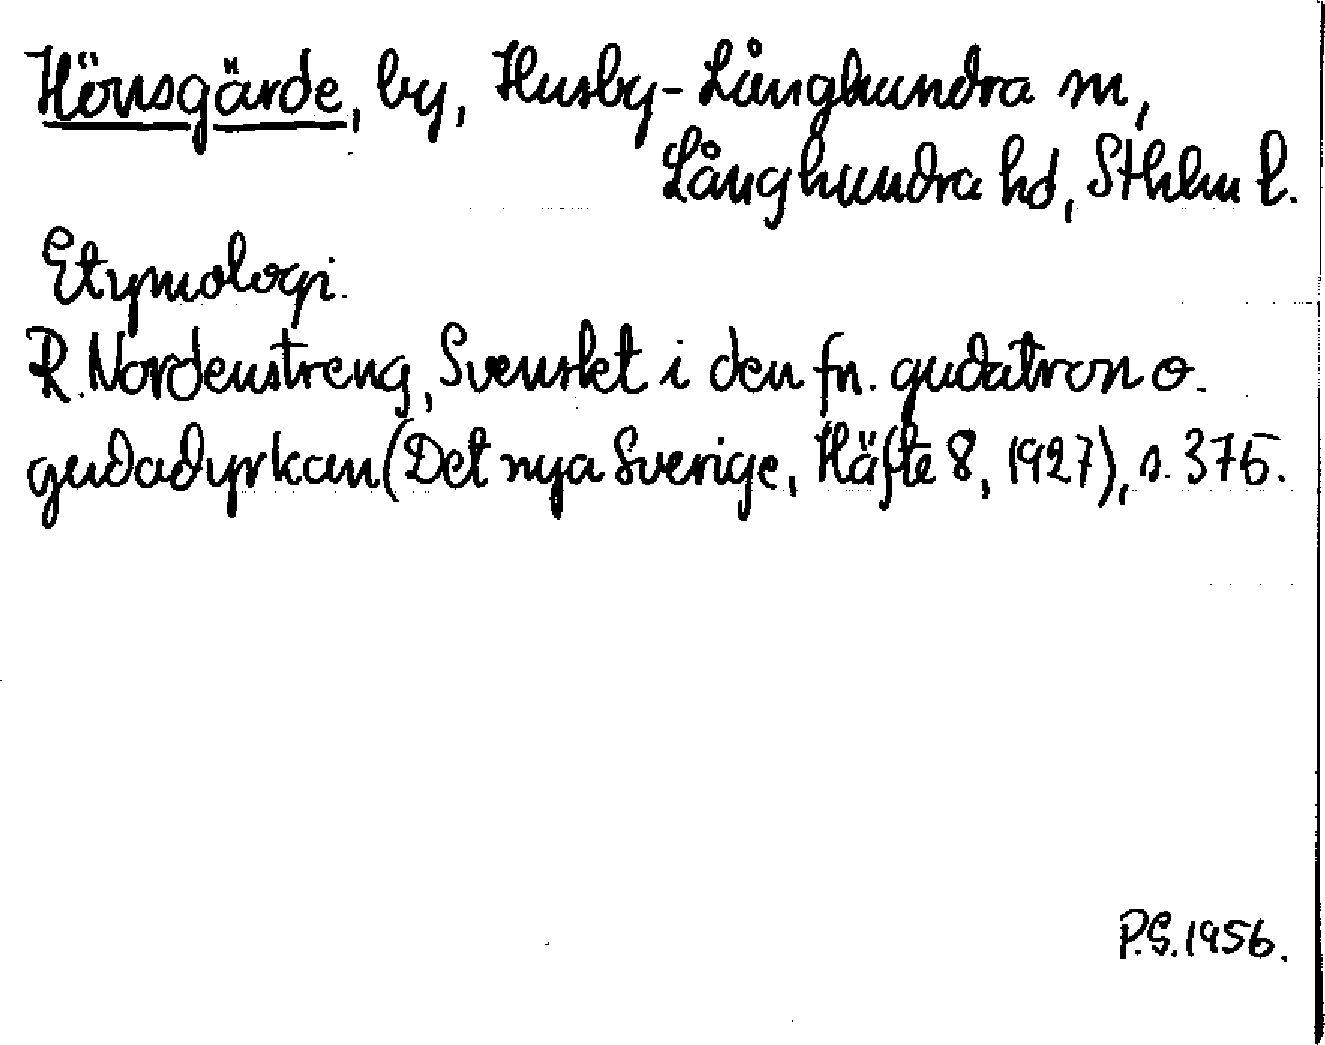 Hönsgärde, by, Husby-Långhundra sn,
Långhundra hd, Sthlm l.
Etymologi.
R. Nordenstreng, Svenskt i den fn. gudatron o.
gudadyrkan (Det nya Sverige, Häfte 8, 1927), s. 375.
P.S. 1956.